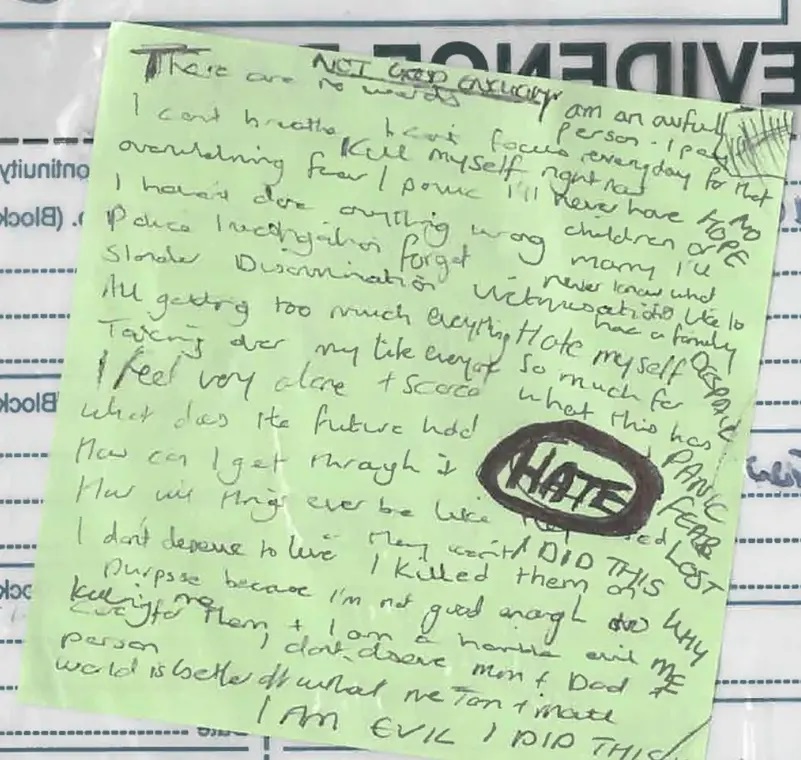 EVIDENCE
NOT GOOD ENOUGH
There are no words
I am an awful person. I pay everyday for that
I can't breathe I can't focus
Kill myself right now
overwhelming fear / panic I'll never have NO HOPE
I haven't done anything wrong children or marry I'll
Police Investigation forget never know what
Slander Discrimination Victimisation like to have a family
All getting too much everything Hate myself DESPAIR
Taking over my life everyday so much for
I feel very alone + scared what this has
What does the future hold PANIC
How can I get through it HATE FEAR
How will things ever be like LOST
I don't deserve to live They won't I DID THIS
I killed them on WHY
purpose because I'm not good enough to ME
care for them + I am a horrible evil
Killing me
person I don't deserve mum + Dad +
world is better off without me Tom + Matt
I AM EVIL I DID THIS